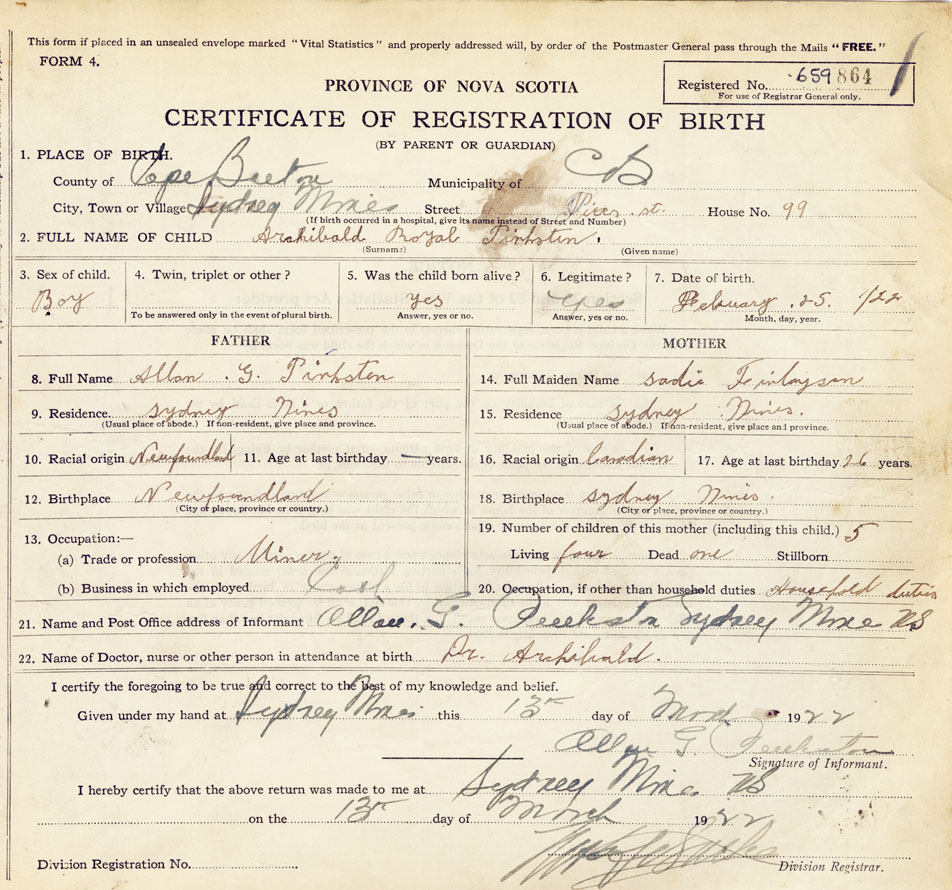 This form if placed in an unsealed envelope marked "Vital Statistics" and properly addressed will, by order of the Postmaster General pass through the Mails "FREE."
FORM 4.
PROVINCE OF NOVA SCOTIA
Registered No. 659864
For use of Registrar General only.
CERTIFICATE OF REGISTRATION OF BIRTH
(BY PARENT OR GUARDIAN)
1. PLACE OF BIRTH.
County of Cape Breton Municipality of CB
City, Town or Village Sydney Mines Street Pier st. House No. 99
(If birth occurred in a hospital, give its name instead of Street and Number)
2. FULL NAME OF CHILD Archibald Royal Pinksten.
(Surname) (Given name)
3. Sex of child. 4. Twin, triplet or other? 5. Was the child born alive? 6. Legitimate? 7. Date of birth.
Boy yes yes Febuary . 25. /22
To be answered only in the event of plural birth. Answer, yes or no. Answer, yes or no. Month, day, year.
FATHER MOTHER
8. Full Name Allan . G. Pinksten 14. Full Maiden Name Sadie Finlayson
9. Residence. Sydney Mines 15. Residence Sydney Mines.
(Usual place of abode.) If non-resident, give place and province. (Usual place of abode.) If non-resident, give place and province.
10. Racial origin Newfoundland 11. Age at last birthday — years. 16. Racial origin Canadian 17. Age at last birthday 26 years.
12. Birthplace Newfoundland 18. Birthplace Sydney Mines.
(City or place, province or country.) (City or place, province or country.)
13. Occupation:— 19. Number of children of this mother (including this child.) 5
(a) Trade or profession Miner. Living four Dead one Stillborn
(b) Business in which employed Coal 20. Occupation, if other than household duties Household duties
21. Name and Post Office address of Informant Allan. G. Sydney Mine NS
22. Name of Doctor, nurse or other person in attendance at birth Dr. Archibald.
I certify the foregoing to be true and correct to the best of my knowledge and belief.
Given under my hand at Sydney Mines this 13 day of March 1922
Allan G
Signature of Informant.
I hereby certify that the above return was made to me at Sydney Mine NS
on the 13 day of March 1922
Division Registration No. Division Registrar.